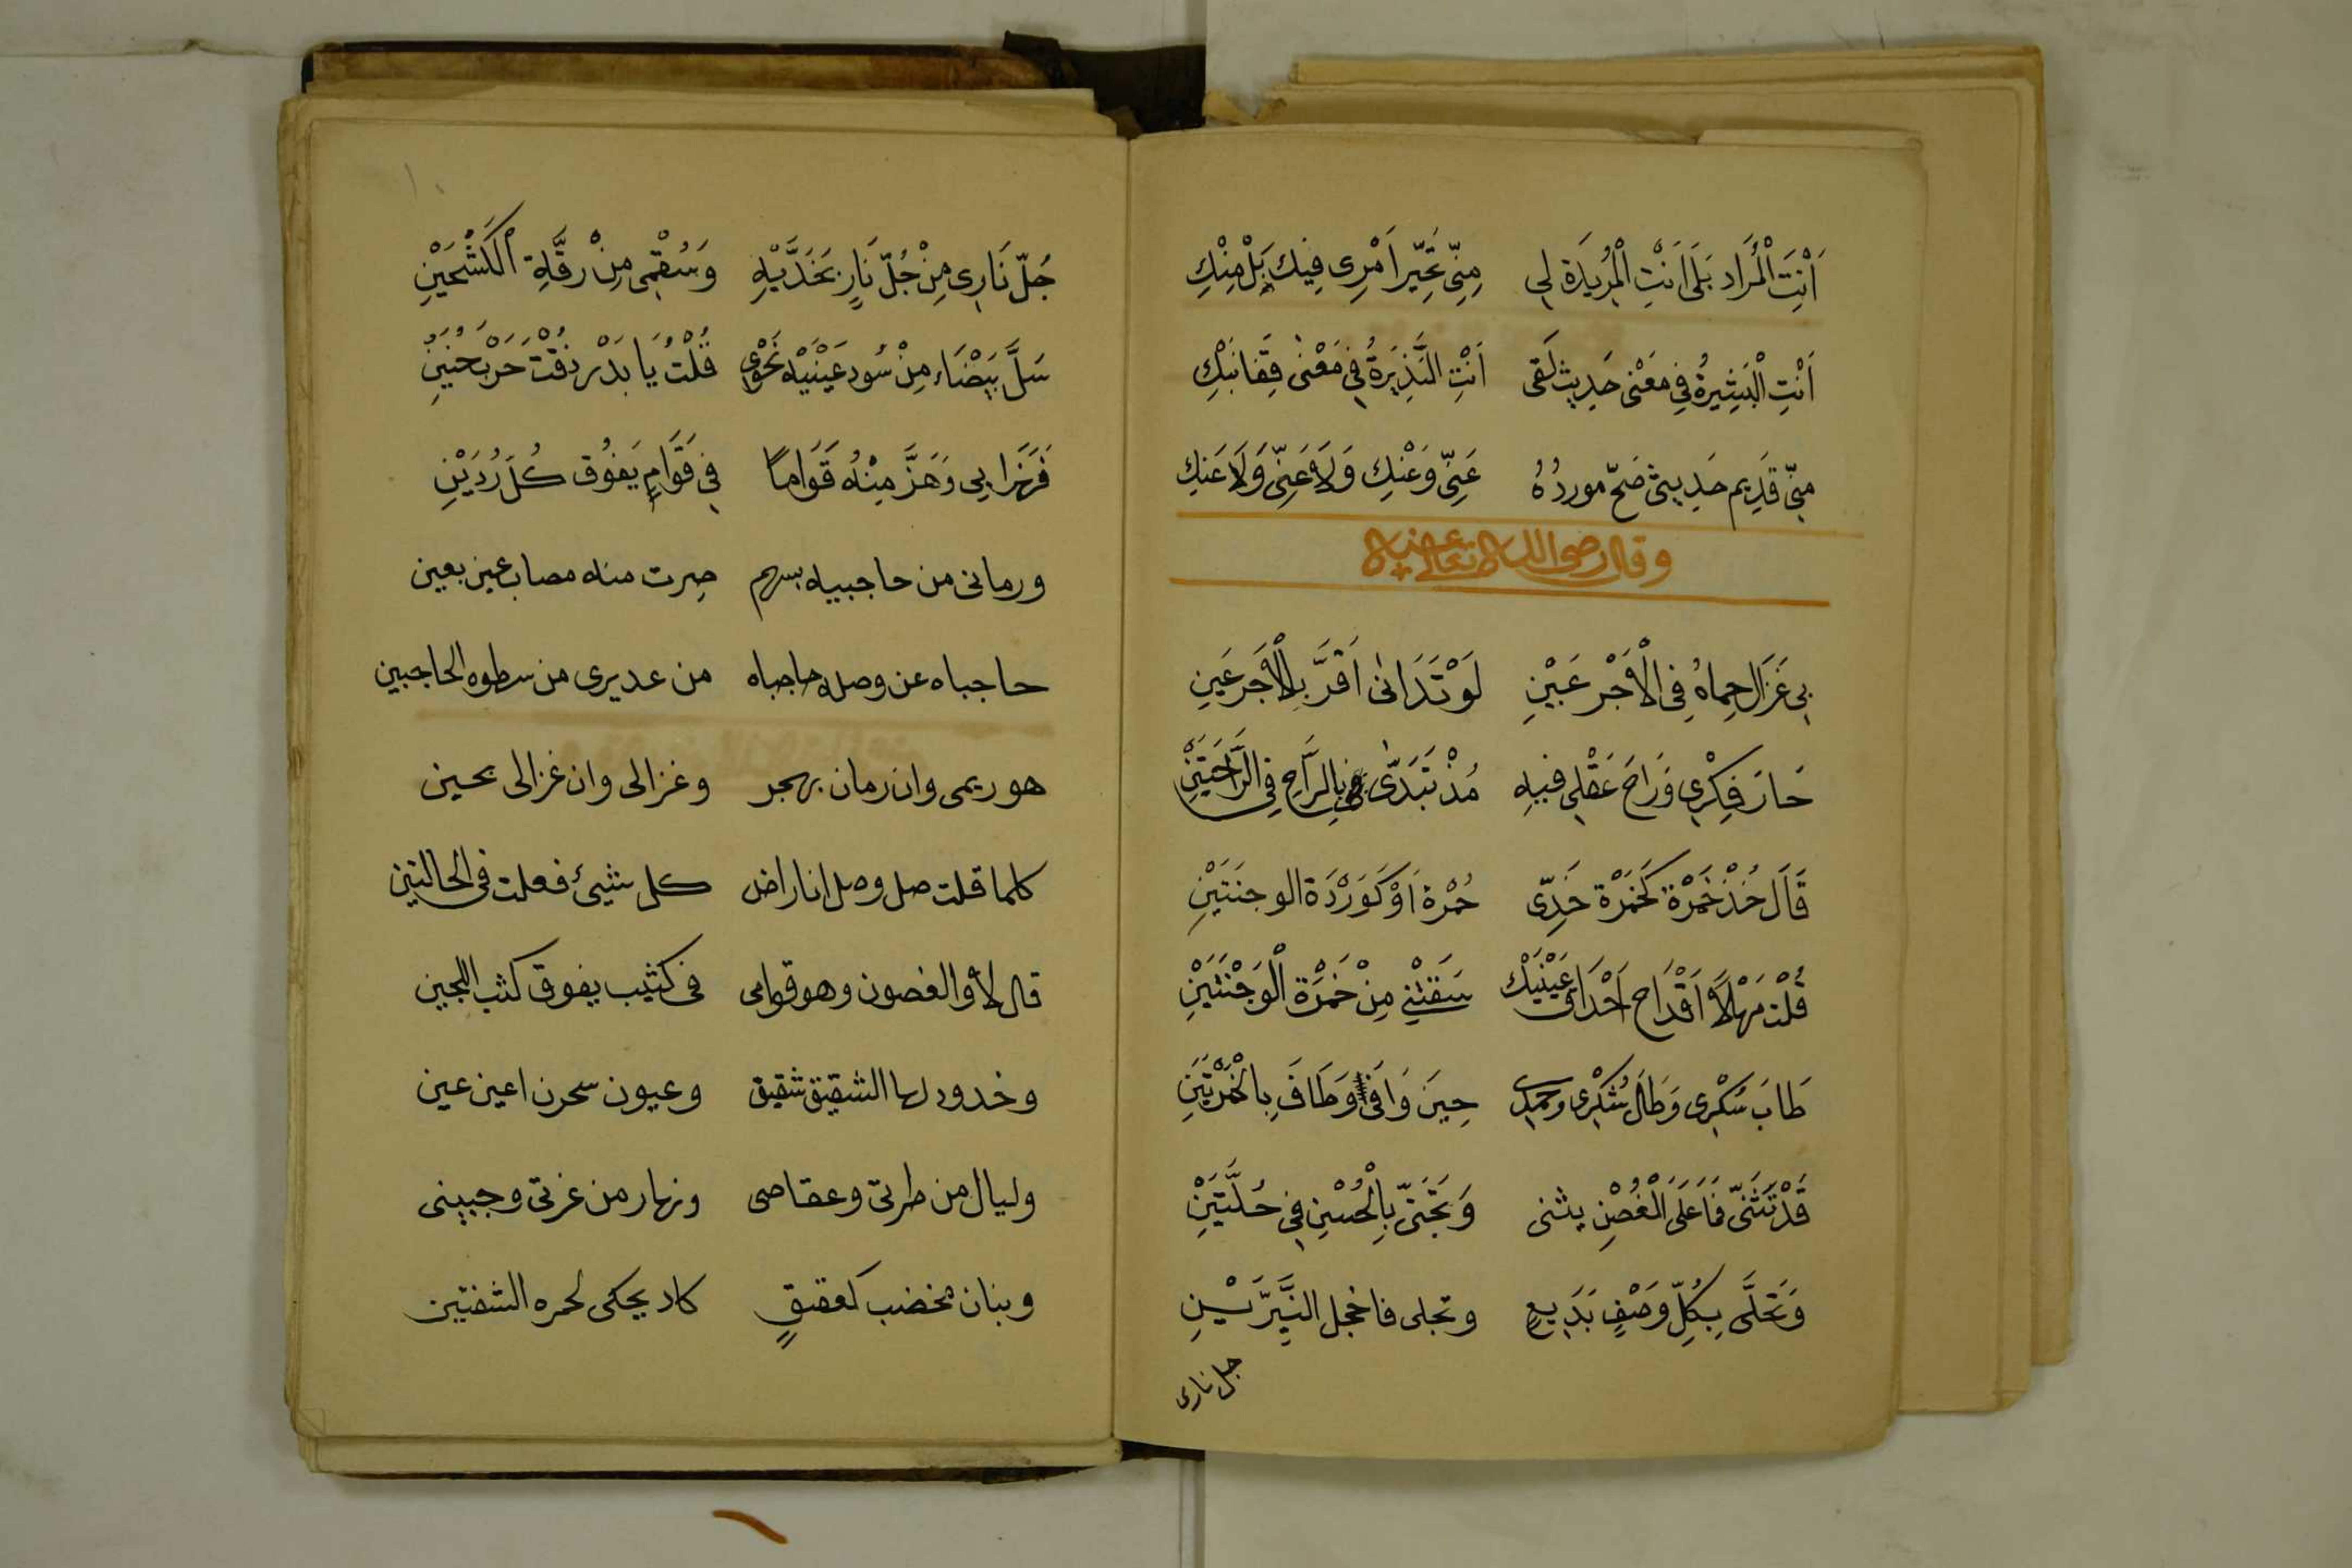 اَنْتَ الْمُرَاد بَلَى اَنْتِ الْمُرِيدَة لِى مِنِّى تَحَيَّرَ اَمْرِى فِيكِ بَلْ مِنْكِ
اَنْتِ الْبَشِيرَةُ فِى مَعْنى حَدِيث لَقى اَنْتِ النَّذِيرَةُ فِى مَعْنٰى قِفَا نَبْكِ
مِنِّى قَدِيم حَدِيثى صَحّ مورِدُهُ عَنِّى وَعَنْكِ وَلَا عَنِّى وَلَا عَنكِ
وقال رضى الله تعالى عنه
بِى غَزَال حِماهُ فِى الْاَجْرَعَيْنِ لَوْ تَدَانٰى اَقَرَّ بِالْاَجرَعَينِ
حَارَ فِكْرِى وَرَاحَ عَقْلِى فيهِ مُذْ تَبَدّٰى بِالرَّاحِ فِى الرَّاحَتَيْنِ
قَالَ خُذْ خَمْرَة كَخَمْرَة خَدِّى حُمْرَة اَوْ كَوَرْدَة الوجنَتَيْنِ
قُلْت مَهْلًا اَقْدَاح اَحْدَاق عَيْنَيْكَ سَقَتْنِى مِنْ خَمْرَة الْوَجْنَتَيْنِ
طَابَ سُكْرِى وَطَالَ شُكْرِى وحمدى حِينَ وَافٰى وَطَافَ بِالْخَمْرَتَيْنِ
قَدْ تَثَنّٰى فَمَا عَلَى الْغُصْنِ يثنى وَتَجَنّٰى بِالْحُسْنِ فِى حُلَّتَيْنِ
وَتَحَلَّى بِكُلِّ وَصْفٍ بَدَيعٍ وتجلى فاخجل النَّيِّرَيْنِ
جل نارى
جُلّ نَارِى مِنْ جُلّ نَارٍ بِخَدَّيْهِ وَسُقْمِى مِنْ رِقَّةِ الْكَشْحَيْنِ
سَلَّ بَيْضَاء مِنْ سُود عَيْنَيْه نَحْوِى قُلْتُ يَا بَدْر ذقْتَ حَرْبَ حُنَيْنِ
فَرَنَا بِى وَهَزَّ مِنْهُ قَوَاماً فِى قَوَامٍ يَفُوق كُلّ رُدَيْنِ
ورمانى من حاجبيه بسهم صِرت منه مصاب عين بعين
حاجباه عن وصله حاجباه من عديرى من سطوه الحاجبين
هو ريمى وان رمان بهجر وغزالى وان غزالى بحين
كلما قلت صل وصل انا راض كل شيئ فعلت فى الحالتين
قال لا والغصون وهو قوامى فى كثيب يفوق كثب اللجين
وخدود لها الشقيق شقيق وعيون سحرن اعين عين
وليال من طرتى وعقاصى ونهار من غرتى وجبينى
وبنان مخضب كعقيقٍ كاد يحكى لحمره الشفتين